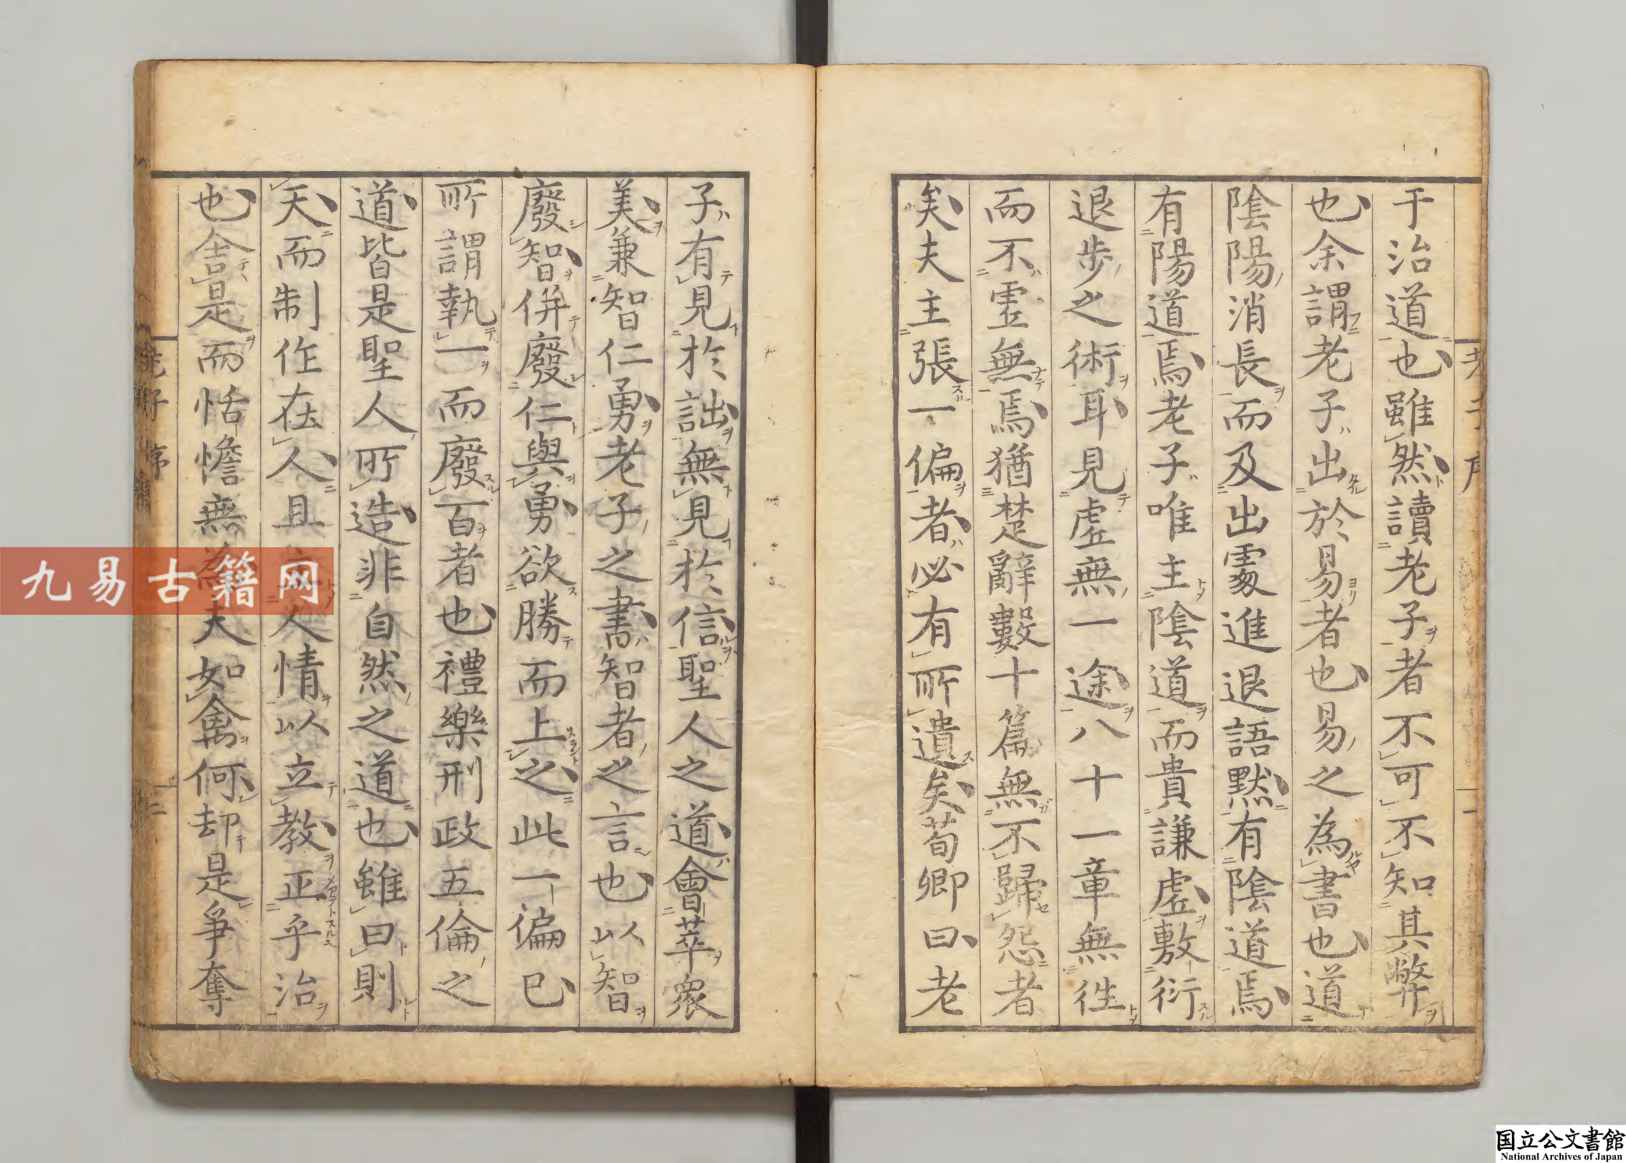 于治道也雖然讀老子者不可不知其弊
也余謂老子出於易者也易之為書也道
陰陽消長而及出處進退語默有陰道焉
有陽道焉老子唯主陰道而貴謙虛敷衍
退步之術耳見虛無一途八十一章無往
而不虛無焉猶楚辭數十篇無不歸怨者
矣夫主張一偏者必有所遺矣荀卿曰老
老子序
子有見於詘無見於信聖人之道會萃衆
美兼智仁勇老子之書智者之言也以智
廢智併廢仁與勇欲勝而上之此一徧已
所謂執一而廢百者也禮樂刑政五倫之
道皆是聖人所造非自然之道也雖曰則
天而制作在人且人情以立教正乎治
也舍是而恬憺無為夫如禽何却是爭奪
老子序
二
九易古籍网
国立公文書館
National Archives of Japan